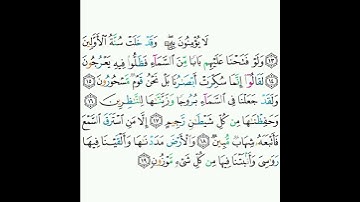 لَا يُؤْمِنُونَ بِهِۦ وَقَدْ خَلَتْ سُنَّةُ ٱلْأَوَّلِينَ
١٣ وَلَوْ فَتَحْنَا عَلَيْهِم بَابًا مِّنَ ٱلسَّمَآءِ فَظَلُّوا۟ فِيهِ يَعْرُجُونَ
١٤ لَقَالُوٓا۟ إِنَّمَا سُكِّرَتْ أَبْصَٰرُنَا بَلْ نَحْنُ قَوْمٌ مَّسْحُورُونَ ١٥
وَلَقَدْ جَعَلْنَا فِى ٱلسَّمَآءِ بُرُوجًا وَزَيَّنَّٰهَا لِلنَّٰظِرِينَ ١٦
وَحَفِظْنَٰهَا مِن كُلِّ شَيْطَٰنٍ رَّجِيمٍ ١٧ إِلَّا مَنِ ٱسْتَرَقَ ٱلسَّمْعَ
فَأَتْبَعَهُۥ شِهَابٌ مُّبِينٌ ١٨ وَٱلْأَرْضَ مَدَدْنَٰهَا وَأَلْقَيْنَا فِيهَا
رَوَٰسِىَ وَأَنۢبَتْنَا فِيهَا مِن كُلِّ شَىْءٍ مَّوْزُونٍ ١٩